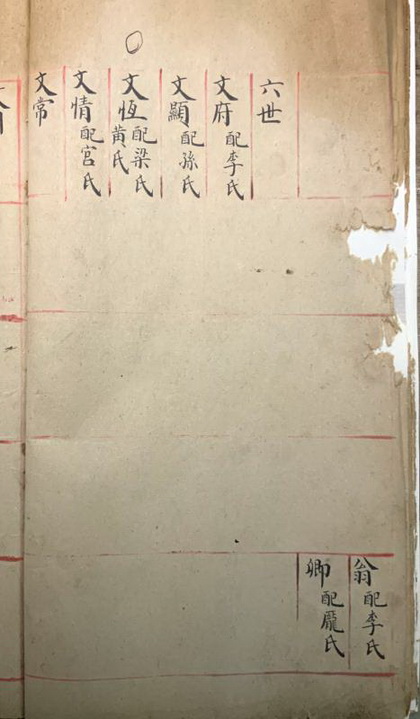 六世
文府 配李氏
文顯 配孫氏
文恆 配梁氏
黄氏
文情 配官氏
文常
翁 配李氏
卿 配龎氏